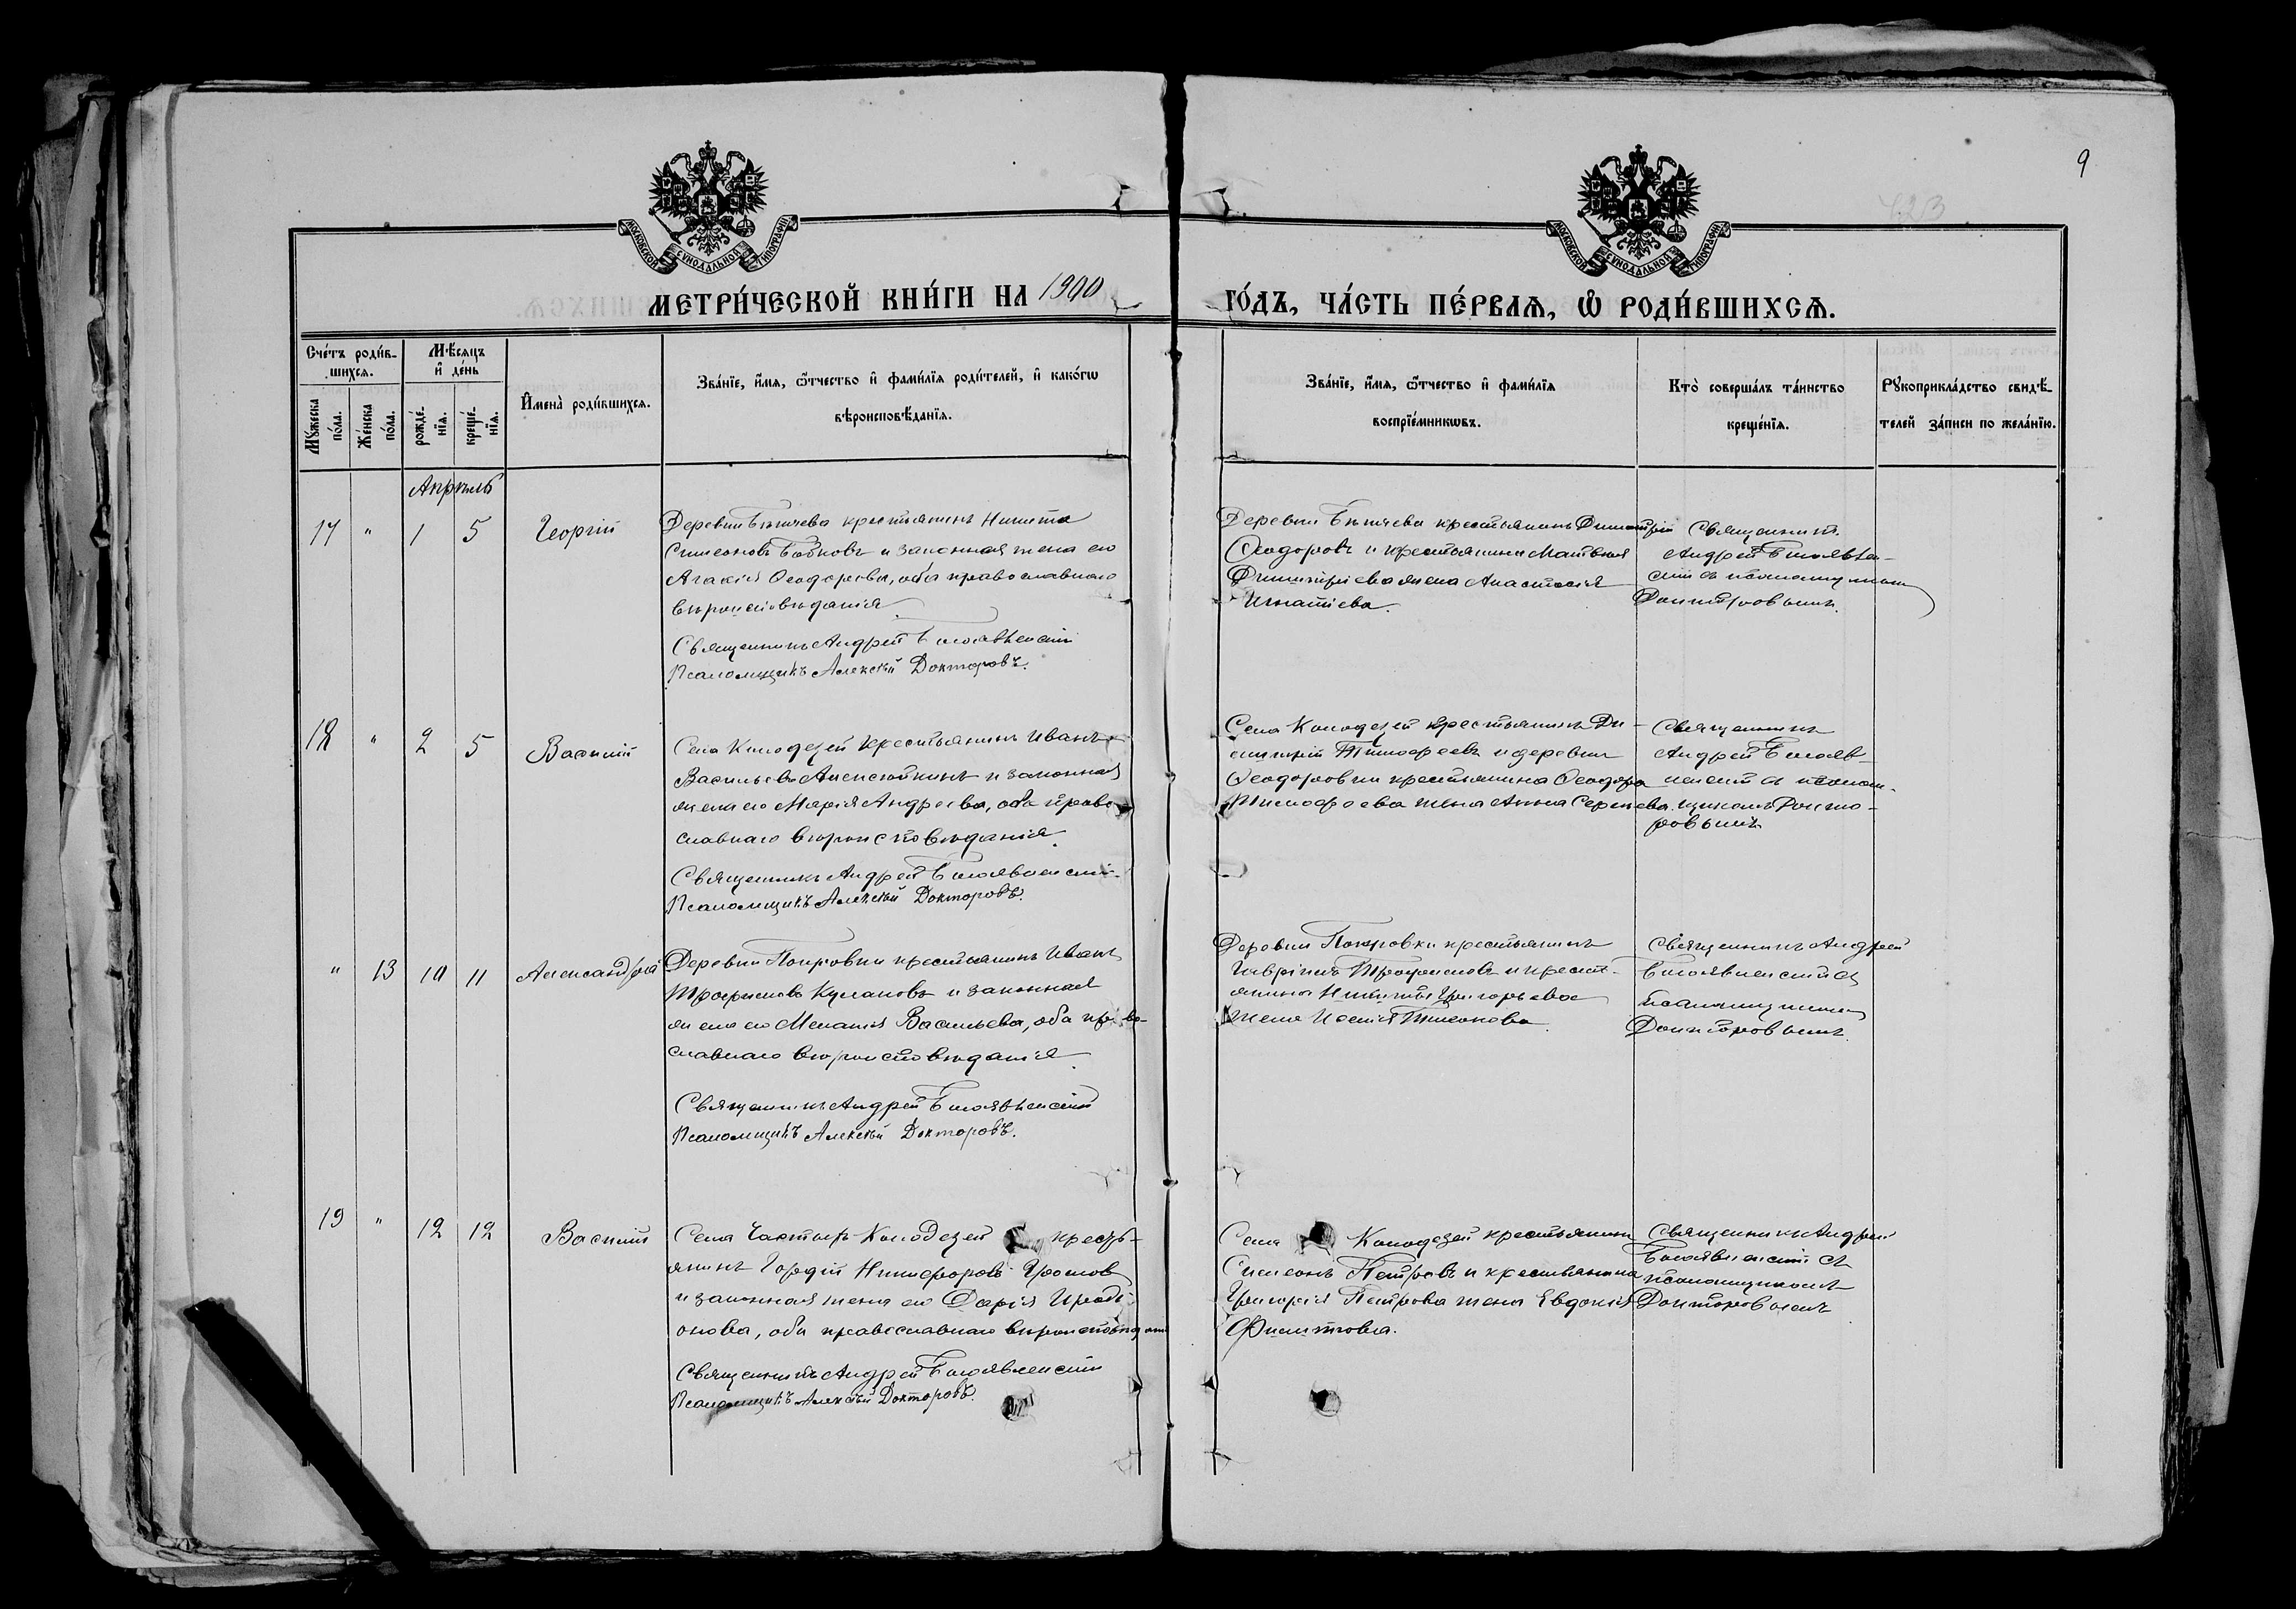 9
423
МОСКОВСКОЙ СѴНОДАЛЬНОЙ ТИПОГРАФІИ
МОСКОВСКОЙ СѴНОДАЛЬНОЙ ТИПОГРАФІИ
МЕТРИ́ЧЕСКОЙ КНИ́ГИ НА 1900
ГО́ДЪ, ЧА́СТЬ ПЕ́РВАѦ, Ѡ҆ РОДИ́ВШИХСѦ.
Сче́тъ роди́в-
шихся.
Мѣ́сяцъ
и҆ де́нь
Мꙋ́жеска
по́ла.
Же́нска
по́ла.
рожде́-
нїа.
креще́-
нїа.
И҆мена̀ роди́вшихся.
Зва́нїе, и҆́мя, ѻ҆́тчество и҆ фами́лїя роди́телей, и҆ како́гѡ
вѣроисповѣ́данїя.
Зва́нїе, и҆́мя, ѻ҆́тчество и҆ фами́лїя
воспрїе́мникѡвъ.
Кто̀ соверша́лъ та́инство
креще́нїя.
Рꙋкоприкла́дство свидѣ́-
телей за́писи по жела́нїю.
Апрѣль
17 " 1 5 Георгій
Деревни крестьянинъ Никита
Симеоновъ Бобковъ и законная жена его
Агаѳія Ѳеодорова, оба православнаго
вѣроисповѣданія.
Священникъ Андрей Богоявленскій
Псаломщикъ Алексѣй Докторовъ.
Деревни крестьянинъ Димитрій
Ѳеодоровъ и крестьянина Матвея
Димитріева жена Анастасія
Игнатіева.
Священникъ
Андрей Богоявлен-
скій съ псаломщикомъ
Докторовымъ.
18 " 2 5 Василій
Села Колодезей крестьянинъ Иванъ
Васильевъ Алексюткинъ и законная
жена его Марія Андреева, оба право-
славнаго вѣроисповѣданія.
Священникъ Андрей Богоявленскій
Псаломщикъ Алексѣй Докторовъ.
Села Колодезей крестьянинъ Ди-
митрій Тимоѳеевъ и деревни
Ѳеодоровки крестьянина Ѳеодора
Тимоѳеева жена Анна Сергіева.
Священникъ
Андрей Богояв-
ленскій съ псалом-
щикомъ Докто-
ровымъ
" 13 10 11 Александра
Деревни Покровки крестьянинъ Иванъ
Трофимовъ Кулаковъ и законная
жена его Меланія Васильева, оба право-
славнаго вѣроисповѣданія.
Священникъ Андрей Богоявленскій
Псаломщикъ Алексѣй Докторовъ.
Деревни Покровки крестьянинъ
Гавріилъ Трофимовъ и кресть-
янина Никиты Григорьева
жена Ксенія
Священникъ Андрей
Богоявленскій съ
псаломщикомъ
Докторовымъ.
19 " 12 12 Василій
Села Частыхъ-Колодезей кресть-
янинъ Гордій Никифоровъ Громовъ
и законная жена его Дарія Иродi-
онова, оба православнаго вѣроисповѣданія
Священникъ Андрей Богоявленскій
Псаломщикъ Алексѣй Докторовъ.
Села Колодезей крестьянинъ
Симеонъ Петровъ и крестьянина
Григорія Петрова жена Евдокія
Филиппова.
Священникъ Андрей
Богоявленскій съ
псаломщикомъ
Докторовымъ